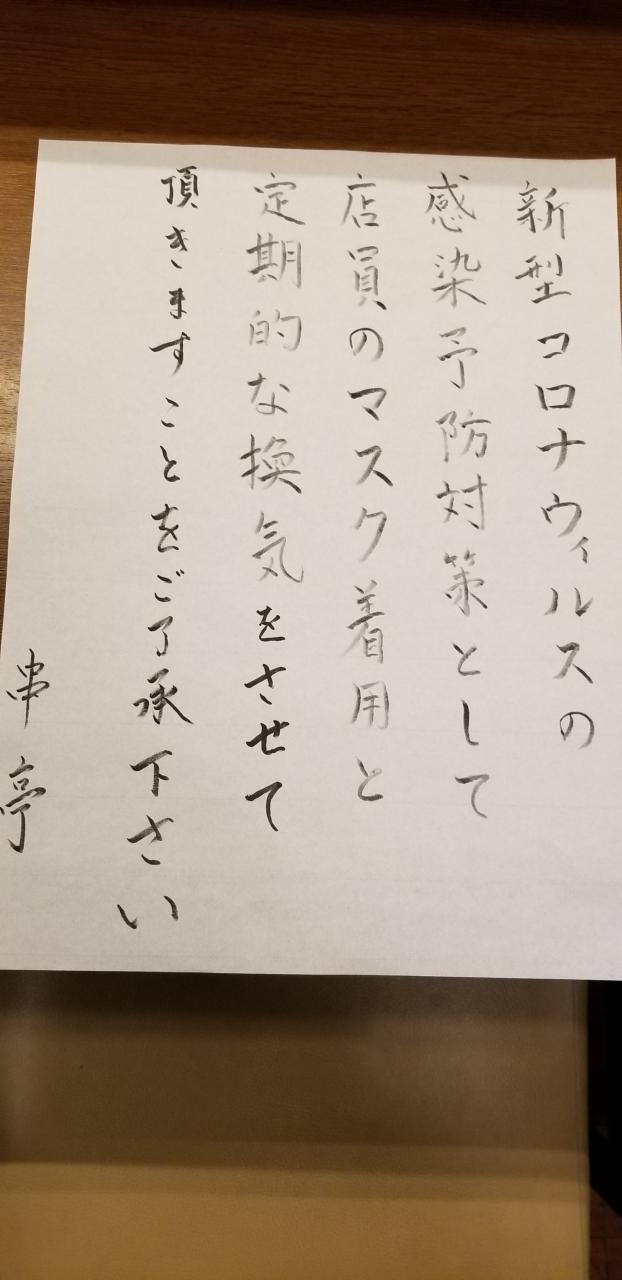 新型コロナウィルスの
感染予防対策として
店員のマスク着用と
定期的な換気をさせて
頂きますことをご了承下さい
串亭